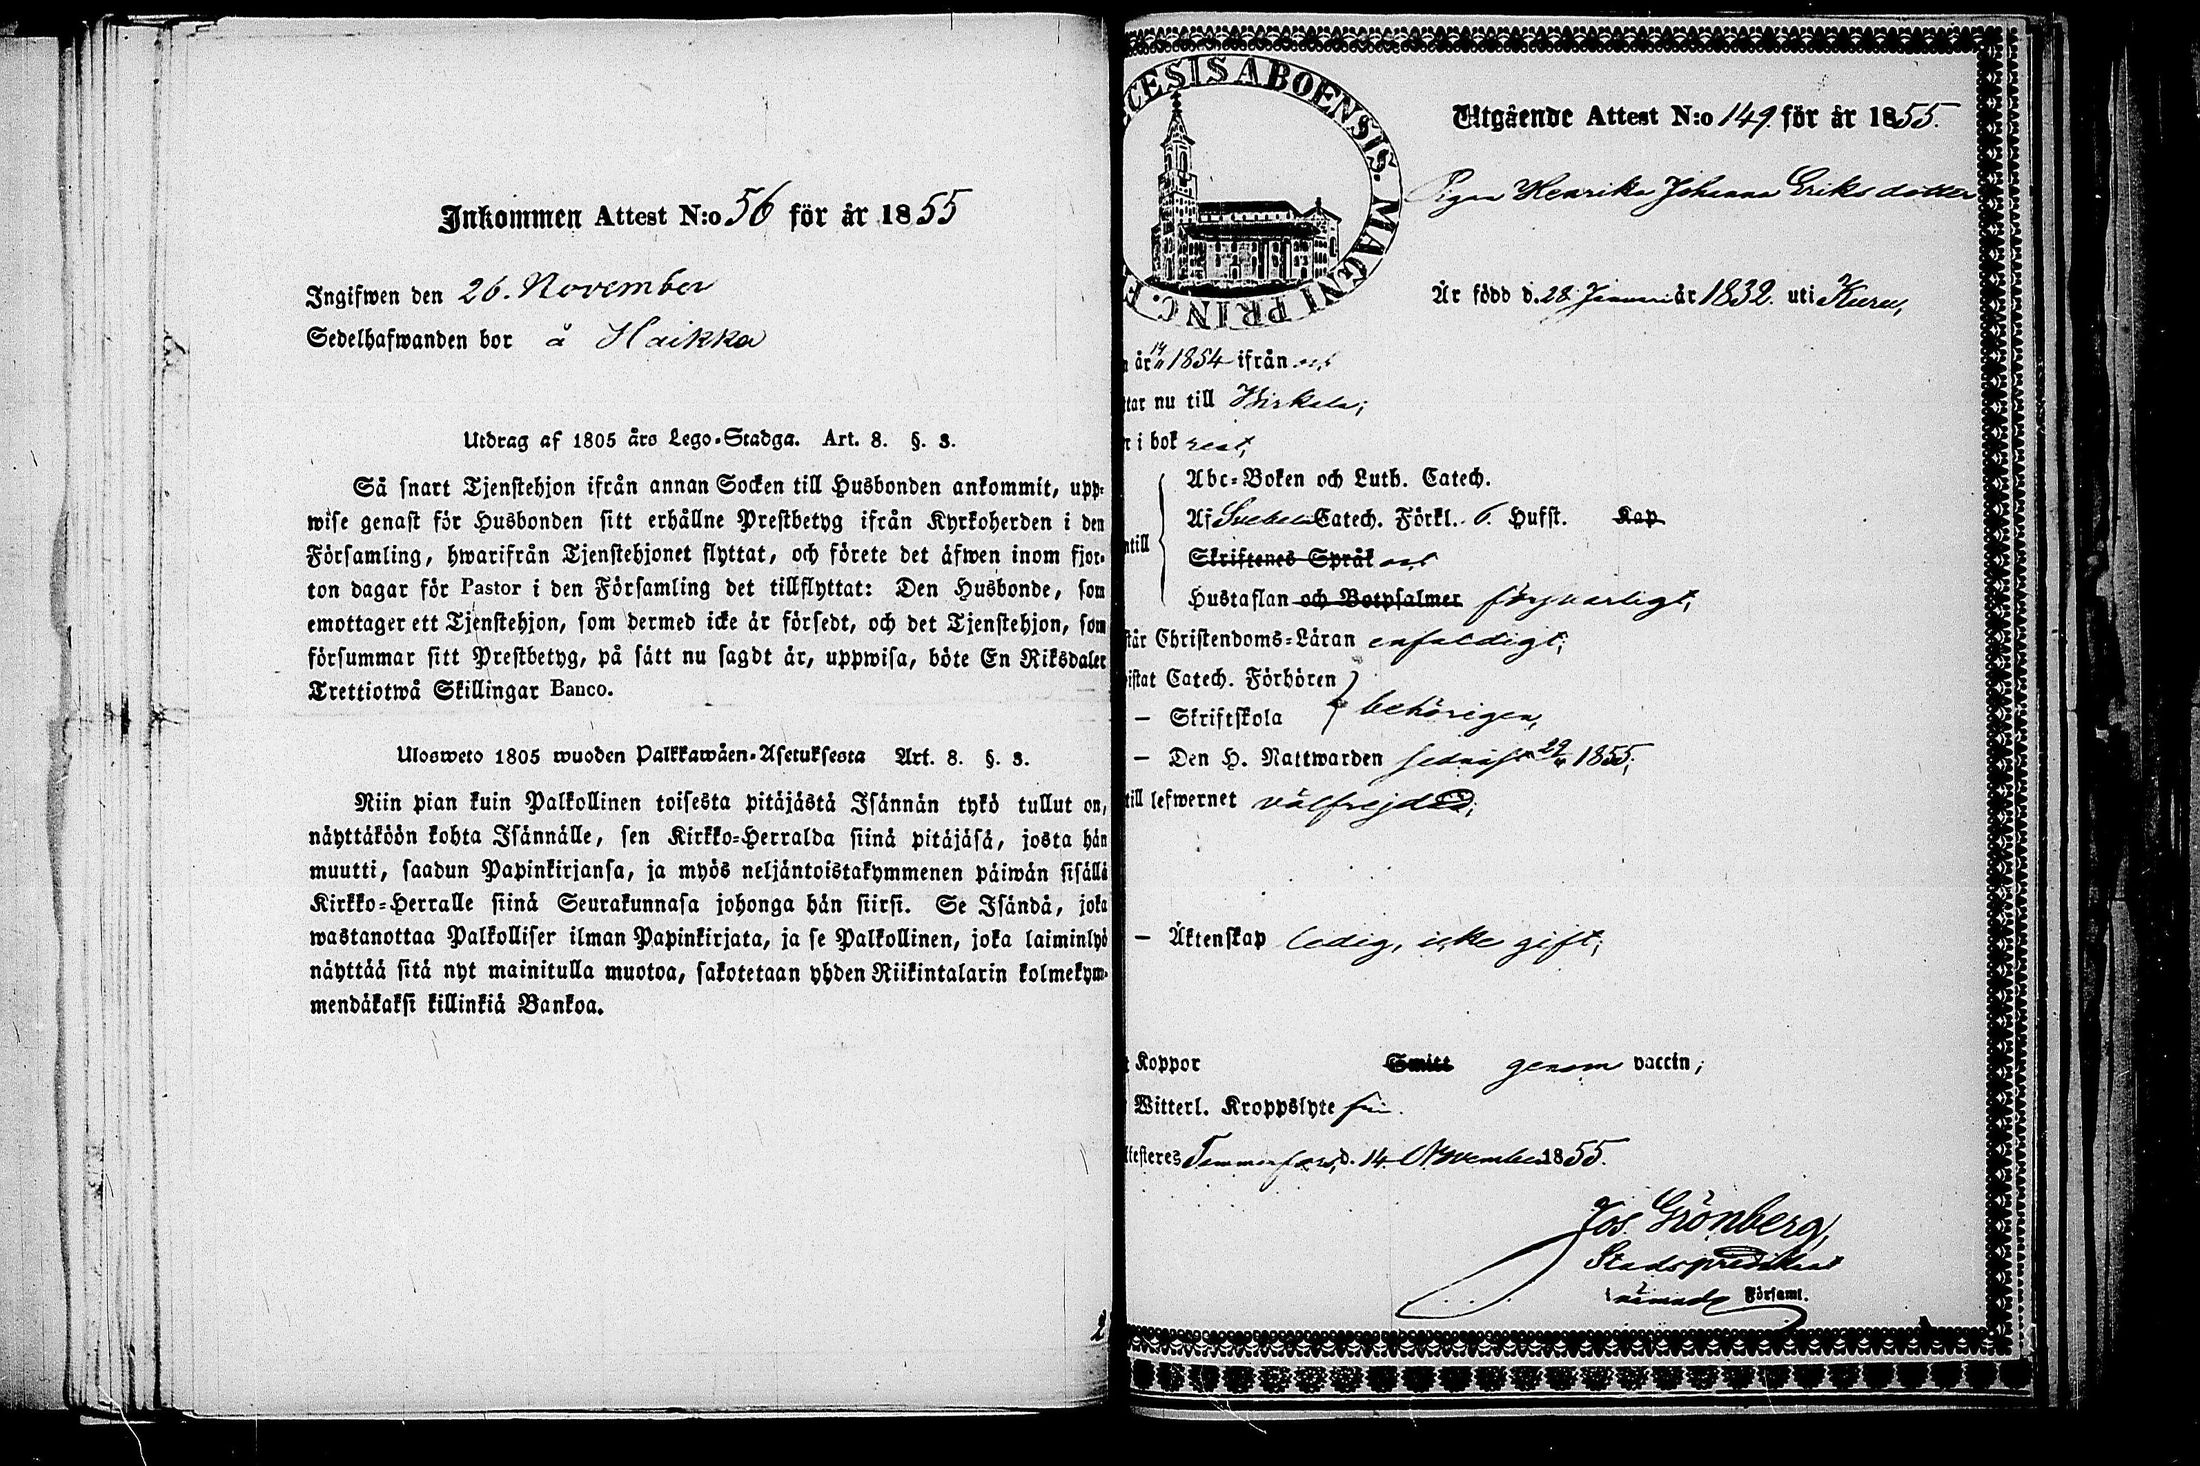 Inkommen Attest N:o 56 för år 1855
Ingifwen den 26. November
Sedelhafwanden bor å Haikka
Utdrag af 1805 års Lego-Stadga. Art. 8. §. 3.
Så snart Tjenstehjon ifrån annan Socken till Husbonden ankommit, upp-
wise genast för Husbonden sitt erhållne Prestbetyg ifrån Kyrkoherden i den
Församling, hwarifrån Tjenstehjonet flyttat, och förete det äfwen inom fjor-
ton dagar för Pastor i den Församling det tillflyttat: Den Husbonde, som
emottager ett Tjenstehjon, som dermed icke är försedt, och det Tjenstehjon, som
försummar sitt Prestbetyg, på sätt nu sagdt är, uppwisa, böte En Riksdaler
Trettiotwå Skillingar Banco.
Ulosweto 1805 wuoden Palkkawäen-Asetuksesta Art. 8. §. 3.
Niin pian kuin Palkollinen toisesta pitäjästä Isännän tykö tullut on,
näyttäköön kohta Isännälle, sen Kirkko-Herralda siinä pitäjäsä, josta hän
muutti, saadun Papinkirjansa, ja myös neljäntoistakymmenen päiwän sisällä
Kirkko-Herralle siinä Seurakunnasa johonga hän siirsi. Se Isändä, joka
wastanottaa Palkolliser ilman Papinkirjata, ja se Palkollinen, joka laiminlyö
näyttää sitä nyt mainitulla muotoa, sakotetaan yhden Riikintalarin kolmekym-
mendäkaksi killinkiä Bankoa.
CESIS ABOENSIS. MAGNI PRINC. F
Utgående Attest N:o 149. för år 1855.
Pigan Henrika Johanna Eriksdotter
Är född d. 28 Januari år 1832. uti Kuru,
år 1854 ifrån
tar nu till Birkala;
i bok rent,
Abc-Boken och Luth. Catech.
Af Svebelii Catech. Förkl. 6. Hufst. Kap
ntill
Skriftenes Språk
Hustaflan och Botpsalmer försvarligt,
står Christendoms-Läran enfaldigt;
istat Catech. Förhören
— Skriftskola behörigen,
— Den H. Nattwarden sednast 1855;
till lefwernet välfrejdad;
— Äktenskap ledig, icke gift;
Koppor Smitt genom vaccin;
Witterl. Kroppslyte fri.
ttesteres Tammerfors, d. 14. November 1855.
Jos. Grönberg,
Stadspredikant
i nämnde Församl.